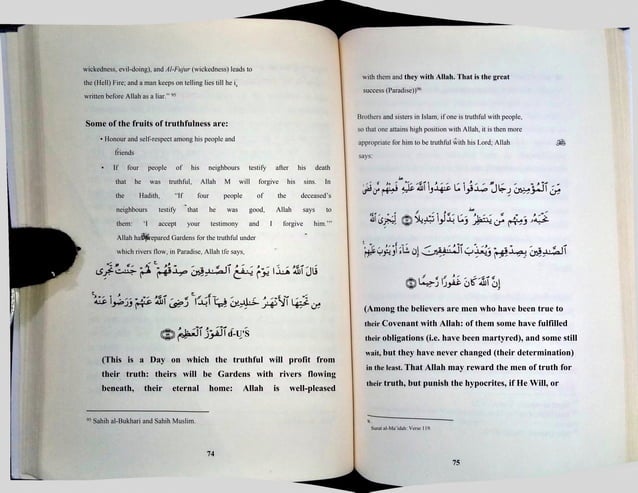 wickedness, evil-doing), and Al-Fujur (wickedness) leads to
the (Hell) Fire; and a man keeps on telling lies till he i,
written before Allah as a liar." 95
Some of the fruits of truthfulness are:
• Honour and self-respect among his people and
friends
• If four people of his neighbours testify after his death
that he was truthful, Allah M will forgive his sins. In
the Hadith, “If four people of the deceased’s
neighbours testify that he was good, Allah says to
them: ‘I accept your testimony and I forgive him.’”
Allah has prepared Gardens for the truthful under
which rivers flow, in Paradise, Allah tfe says,
قَالَ ٱللَّهُ هَـٰذَا يَوْمُ يَنفَعُ ٱلصَّـٰدِقِينَ صِدْقُهُمْ ۚ لَهُمْ جَنَّـٰتٌ تَجْرِى
مِن تَحْتِهَا ٱلْأَنْهَـٰرُ خَـٰلِدِينَ فِيهَآ أَبَدًا ۚ رَّضِىَ ٱللَّهُ عَنْهُمْ وَرَضُوا۟ عَنْهُ ۚ
d-U'S ٱلْفَوْزُ ٱلْعَظِيمُ
(This is a Day on which the truthful will profit from
their truth: theirs will be Gardens with rivers flowing
beneath, their eternal home: Allah is well-pleased
95 Sahih al-Bukhari and Sahih Muslim.
74
with them and they with Allah. That is the great
success (Paradise))96
Brothers and sisters in Islam, if one is truthful with people,
so that one attains high position with Allah, it is then more
appropriate for him to be truthful with his Lord; Allah ﷺ
says:
مِّنَ ٱلْمُؤْمِنِينَ رِجَالٌ صَدَقُوا۟ مَا عَـٰهَدُوا۟ ٱللَّهَ عَلَيْهِ ۖ فَمِنْهُم مَّن قَضَىٰ
نَحْبَهُۥ وَمِنْهُم مَّن يَنتَظِرُ ۖ وَمَا بَدَّلُوا۟ تَبْدِيلًا لِّيَجْزِىَ ٱللَّهُ
ٱلصَّـٰدِقِينَ بِصِدْقِهِمْ وَيُعَذِّبَ ٱلْمُنَـٰفِقِينَ إِن شَآءَ أَوْ يَتُوبَ عَلَيْهِمْ ۚ
إِنَّ ٱللَّهَ كَانَ غَفُورًا رَّحِيمًا
(Among the believers are men who have been true to
their Covenant with Allah: of them some have fulfilled
their obligations (i.e. have been martyred), and some still
wait, but they have never changed (their determination)
in the least. That Allah may reward the men of truth for
their truth, but punish the hypocrites, if He Will, or
Surat al-Ma'idah: Verse 119.
75